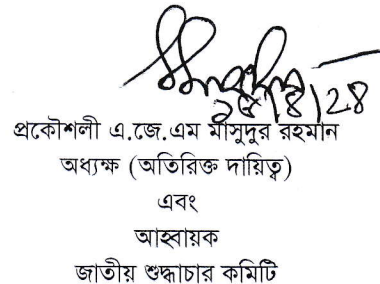 প্রকৌশলী এ.জে.এম মাসুদুর রহমান
অধ্যক্ষ (অতিরিক্ত দায়িত্ব)
এবং
আহ্বায়ক
জাতীয় শুদ্ধাচার কমিটি